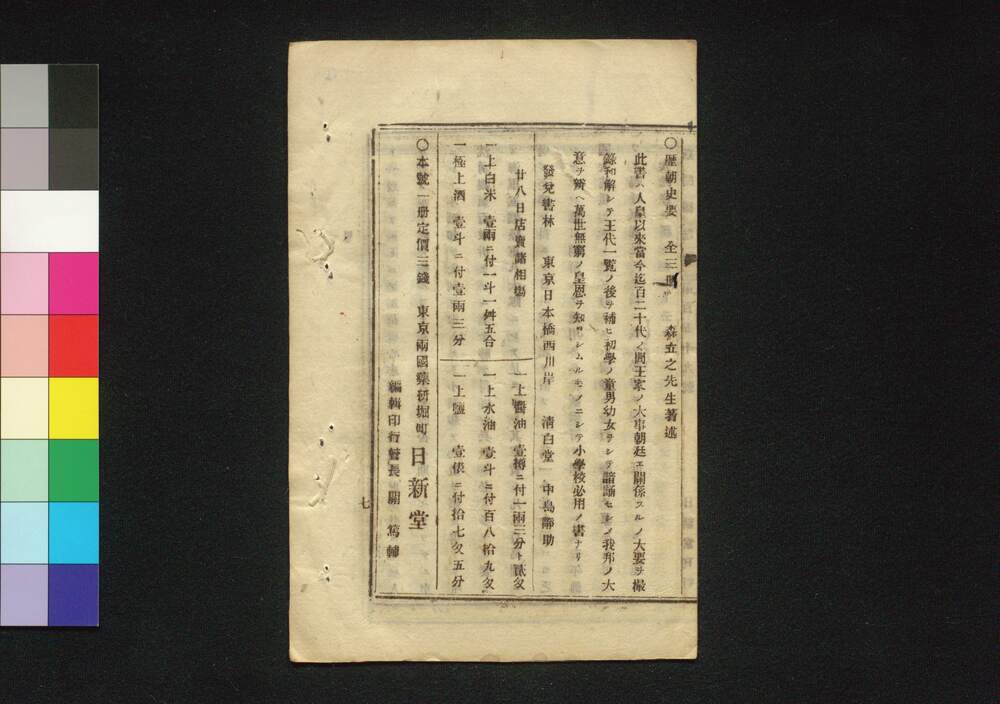 〇歷朝史要 全三冊 森立之先生著述
此書ハ人皇以來當今迄百二十代ノ間王家ノ大事朝廷エ關係スルノ大要ヲ撮
錄和解シテ王代一覽ノ後ヲ補ヒ初學ノ童男幼女ヲシテ諳誦セシメ我邦ノ大
意ヲ辨ヘ萬世無窮ノ皇恩ヲ知ラシムルモノニシテ小學校必用ノ書ナリ
發兌書林 東京日本橋西川岸 清白堂 中島 助
廿八日店賣諸相塲
一上白米 壹兩ニ付一斗一舛五合
一極上酒 壹斗ニ付壹兩三分
一上醬油 壹樽ニ付一兩三分ト貳匁
一上水油 壹斗ニ付百八拾九匁
一上鹽 壹俵ニ付拾七匁五分
〇本號一册定價三錢 東京兩國藥研堀町 日新堂
編輯印行 長 關 篤輔
七